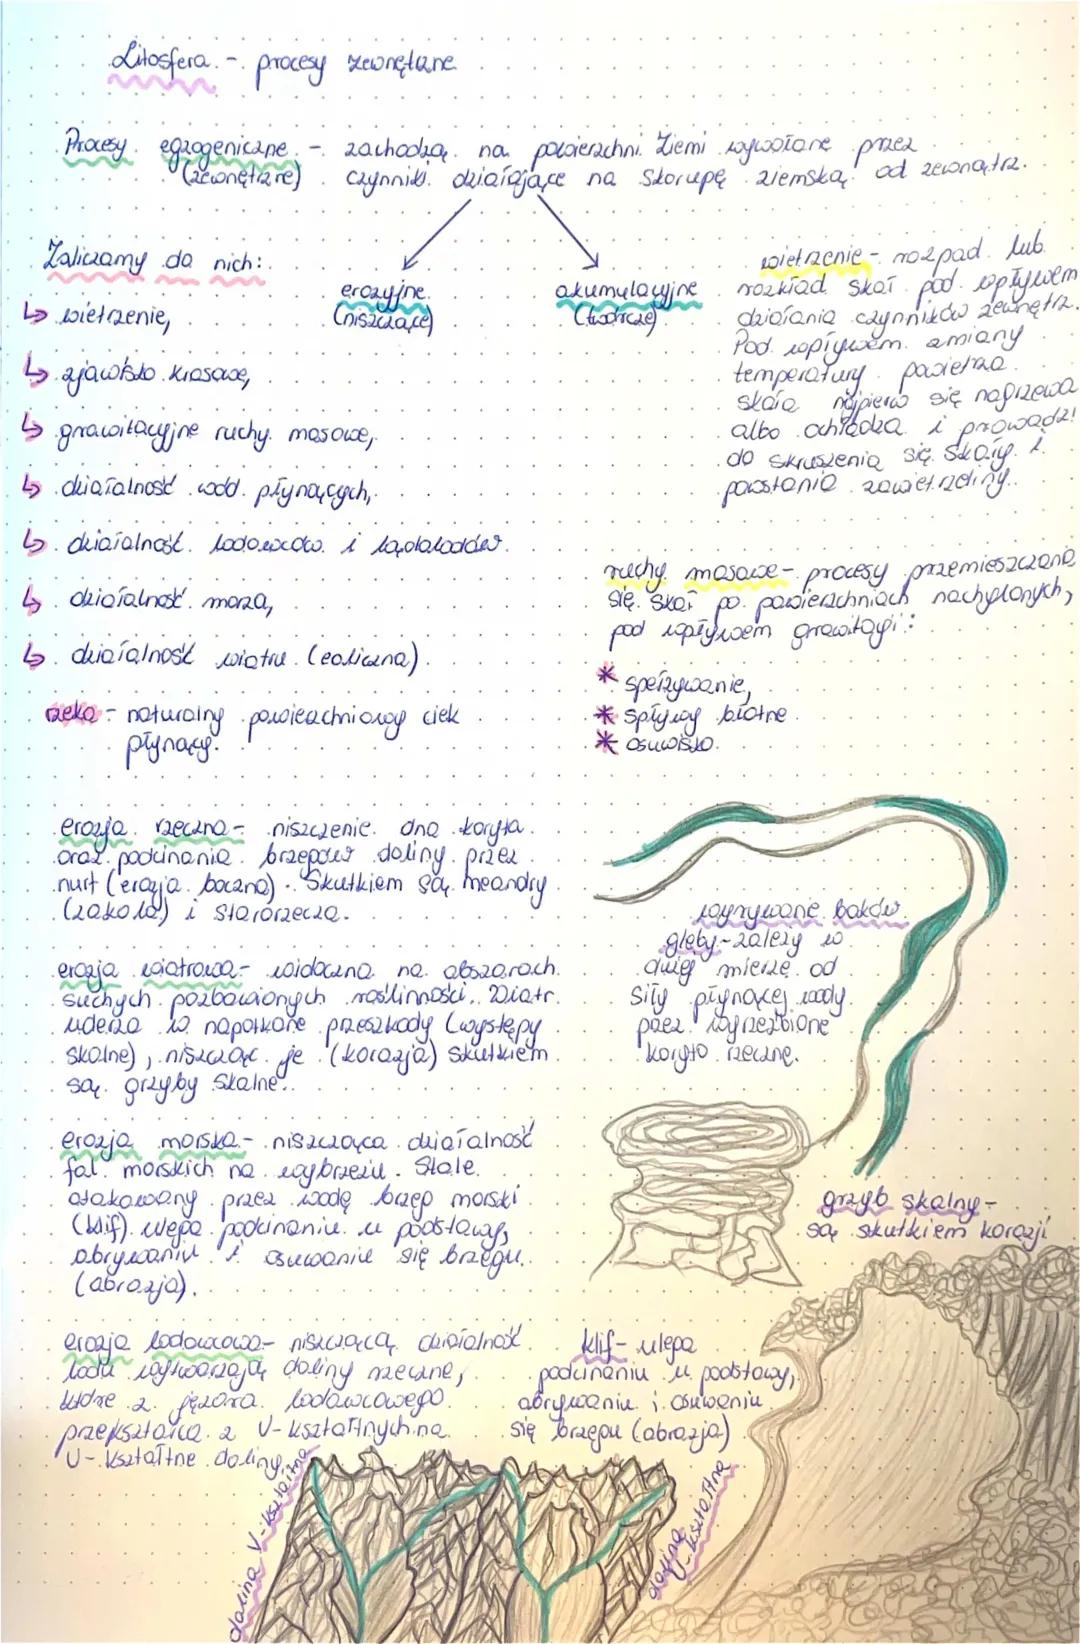 Litosfera - procesy zewnętzne
Procesy egzogeniczne - zachodzą na powierzchni Ziemi wywołane przez
(zewnętrzne) czynniki działające na skorupę ziemską od zewnątrz.
Zaliczamy do nich:
↳ wietrzenie,
↳ zjawisko krasowe,
↳ grawitacyjne ruchy masowe,
↳ działalność wód płynących,
↳ działalność lodowców i lądolodów
↳ działalność morza,
↳ działalność wiatru (eoliczna)
erozyjne
(niszczące)
akumulacyjne
(twórcze)
wietrzenie - rozpad lub
rozkład skał pod wpływem
działania czynników zewnętrz.
Pod wpływem zmiany
temperatury powietrza
skała najpierw się nagrzewa
albo ochładza i prowadzi
do skruszenia się skały i
powstania zawietrzeliny.
ruchy masowe - procesy przemieszczania
się skał po powierzchniach nachylonych,
pod wpływem grawitacji:
* spełzywanie,
* spływy błotne
* osuwisko
rzeka - naturalny powierzchniowy ciek
płynący.
erozja rzeczna - niszczenie dna koryta
oraz podcinania brzegów doliny przez
nurt (erozja boczna). Skutkiem są meandry
(zakola) i starorzecza.
erozja wiatrowa - widoczna na obszarach
suchych pozbawionych roślinności. Wiatr
uderza w napotkane przeszkody (występy
skalne), niszcząc je (korazja) skutkiem
są grzyby skalne.
erozja morska - niszcząca działalność
fal morskich na wybrzeżu. Stale
atakowany przez wodę brzeg morski
(klif) ulega podcinaniu u podstawy,
obrywaniu i osuwanie się brzegu
(abrazja).
erozja lodowcowa - niszczącą działalność
lodu wytwarzają doliny rzeczne,
które z jęzora lodowcowego
przekształca z V-kształtnych na
U-kształtne doliny.
wyrywane boków
gleby - zależy w
dużej mierze od
siły płynącej wody
przez wyrzeźbione
koryto rzeczne.
grzyb skalny -
są skutkiem korazji
klif - ulega
podcinaniu u podstawy,
obrywaniu i osuwaniu
się brzegu (abrazja)
dolina V-kształtna
dolina
-kształtna